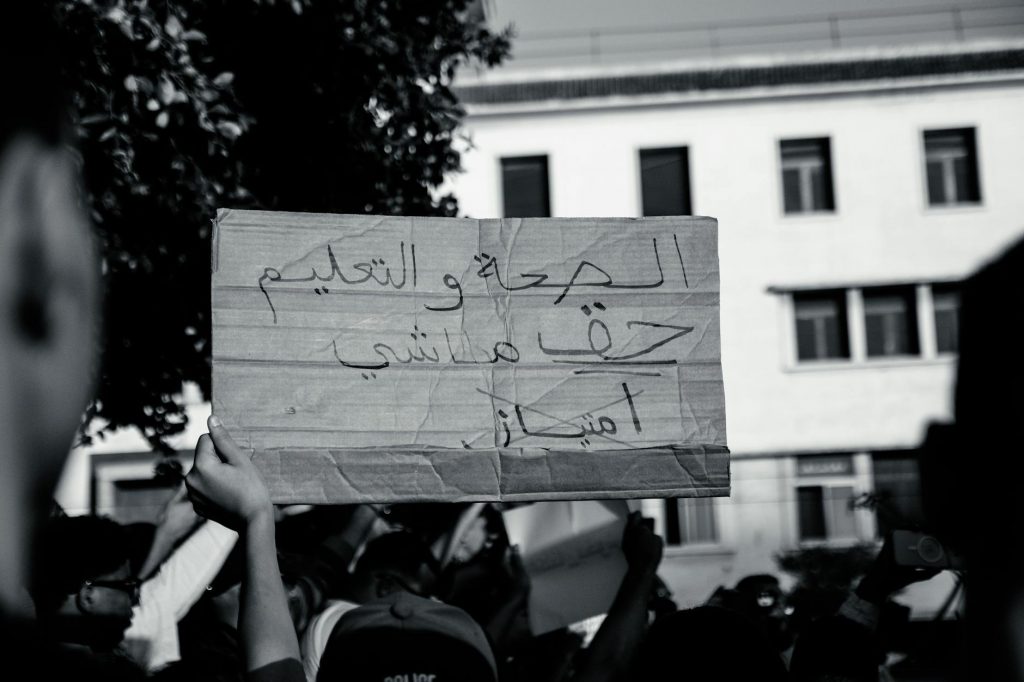 الصحة و التعليم
حق ماشي
امتياز
POLICE